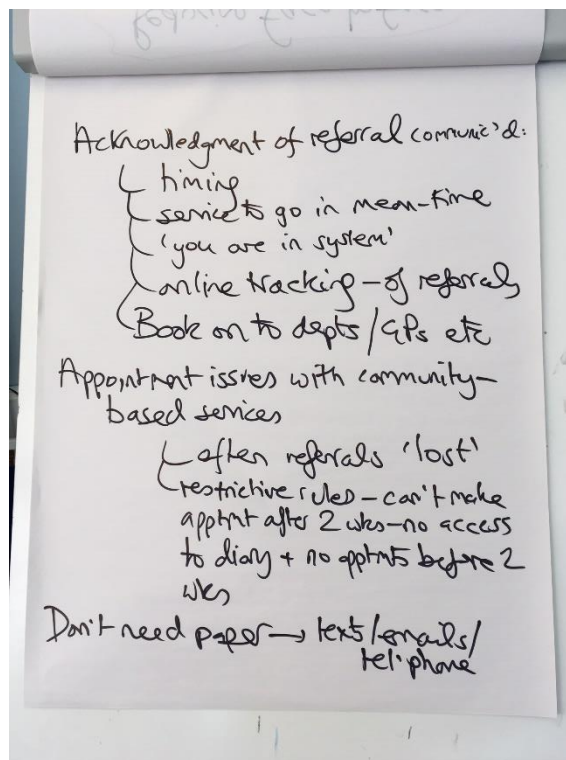 Acknowledgment of referral communic'd:
timing
service to go in mean-time
'you are in system'
online tracking - of referrals
Book on to depts/GPs etc
Appointment issues with community-
based services
often referrals 'lost'
restrictive rules - can't make
apptmt after 2 wks - no access
to diary + no apptmts before 2
wks
Don't need paper → text/emails/
telephone